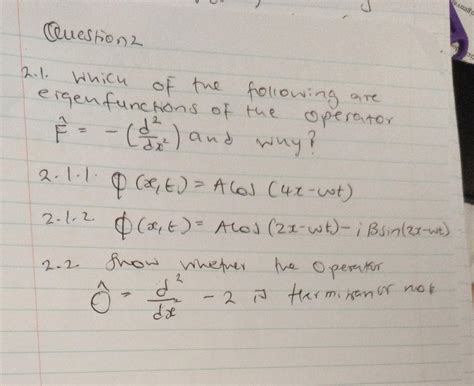 Question 2
2.1. which of the following are
eigenfunctions of the operator
F̂ = - (d²/dx²) and why?
2.1.1. φ(x,t) = A cos (4x-wt)
2.1.2 φ(x,t) = A cos (2x-wt) - i B sin (2x-wt)
2.2 Show whether the operator
Ô = d²/dx - 2 is Hermitian or not